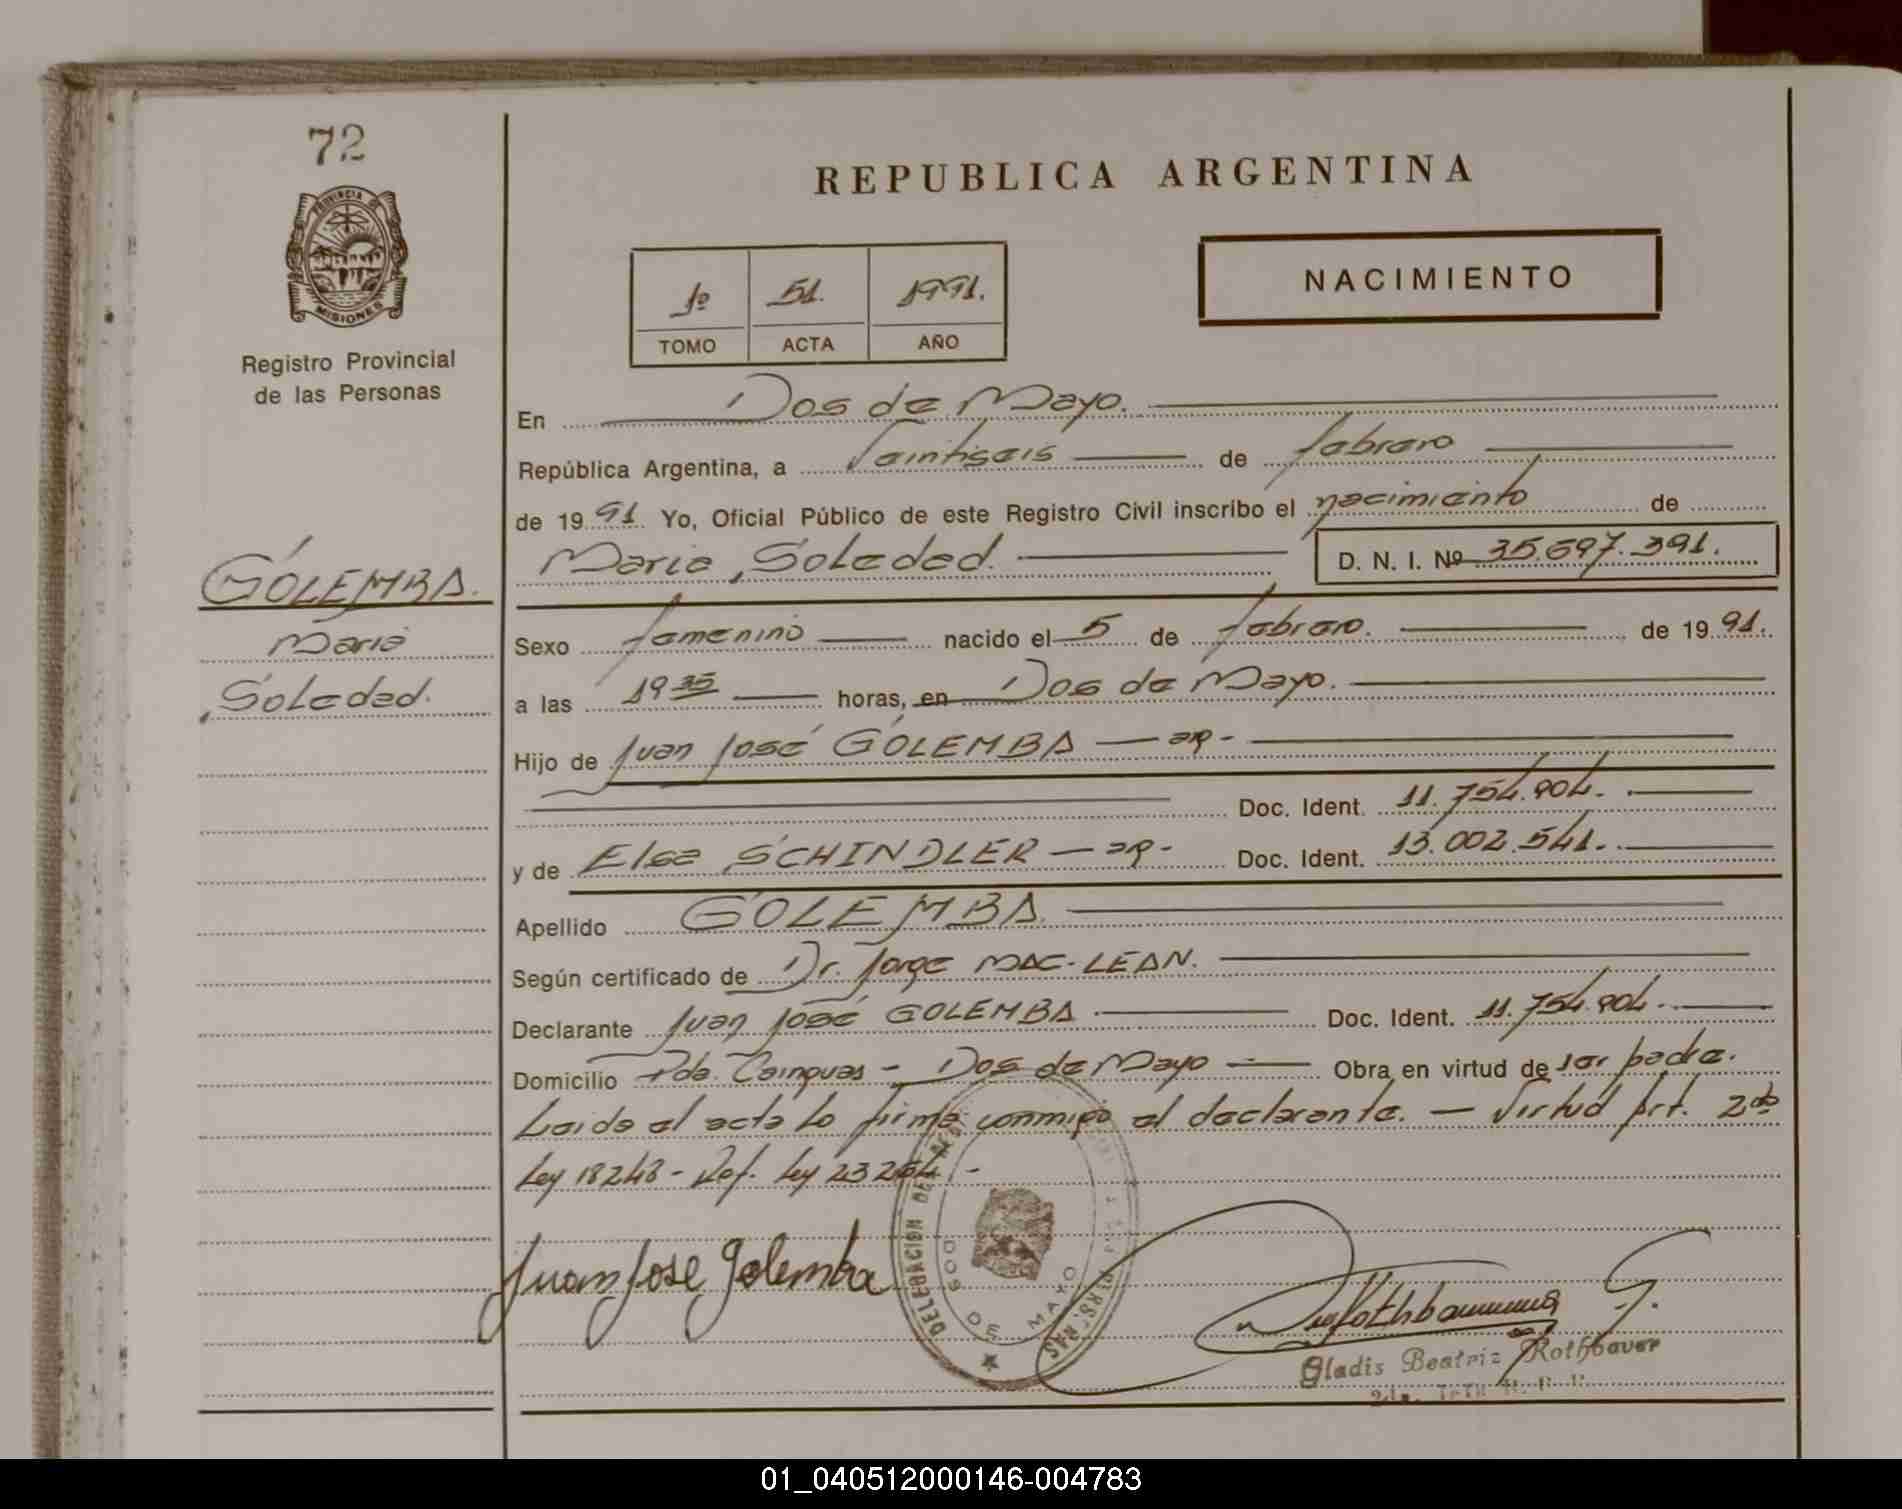 72
PROVINCIA DE
MISIONES
Registro Provincial
de las Personas
GOLEMBA.
Maria
Soledad.
REPUBLICA ARGENTINA
1º 51. 1991.
TOMO ACTA AÑO
NACIMIENTO
En Dos de Mayo.
República Argentina, a Veintiseis de febrero
de 1991 Yo, Oficial Público de este Registro Civil inscribo el nacimiento de
Maria Soledad. D. N. I. Nº 35.697.391.
Sexo femenino nacido el 5 de febrero. de 1991.
a las 19 35 horas, en Dos de Mayo.
Hijo de Juan José GOLEMBA — ar -
Doc. Ident. 11.754.904.
y de Elsa SCHINDLER — ar - Doc. Ident. 13.002.541.
Apellido GOLEMBA.
Según certificado de Dr. Jorge MAC-LEAN.
Declarante Juan José GOLEMBA Doc. Ident. 11.754.904.
Domicilio Pda. Cainguas - Dos de Mayo Obra en virtud de ser padre.
Leida el acta lo firma conmigo el declarante. — Virtud Art. 2do
Ley 18248 - Ref. Ley 23264 -
Juan Jose Golemba
DELEGACION DEL
DOS DE MAYO
Gladis Beatriz Rothbaver
01_040512000146-004783